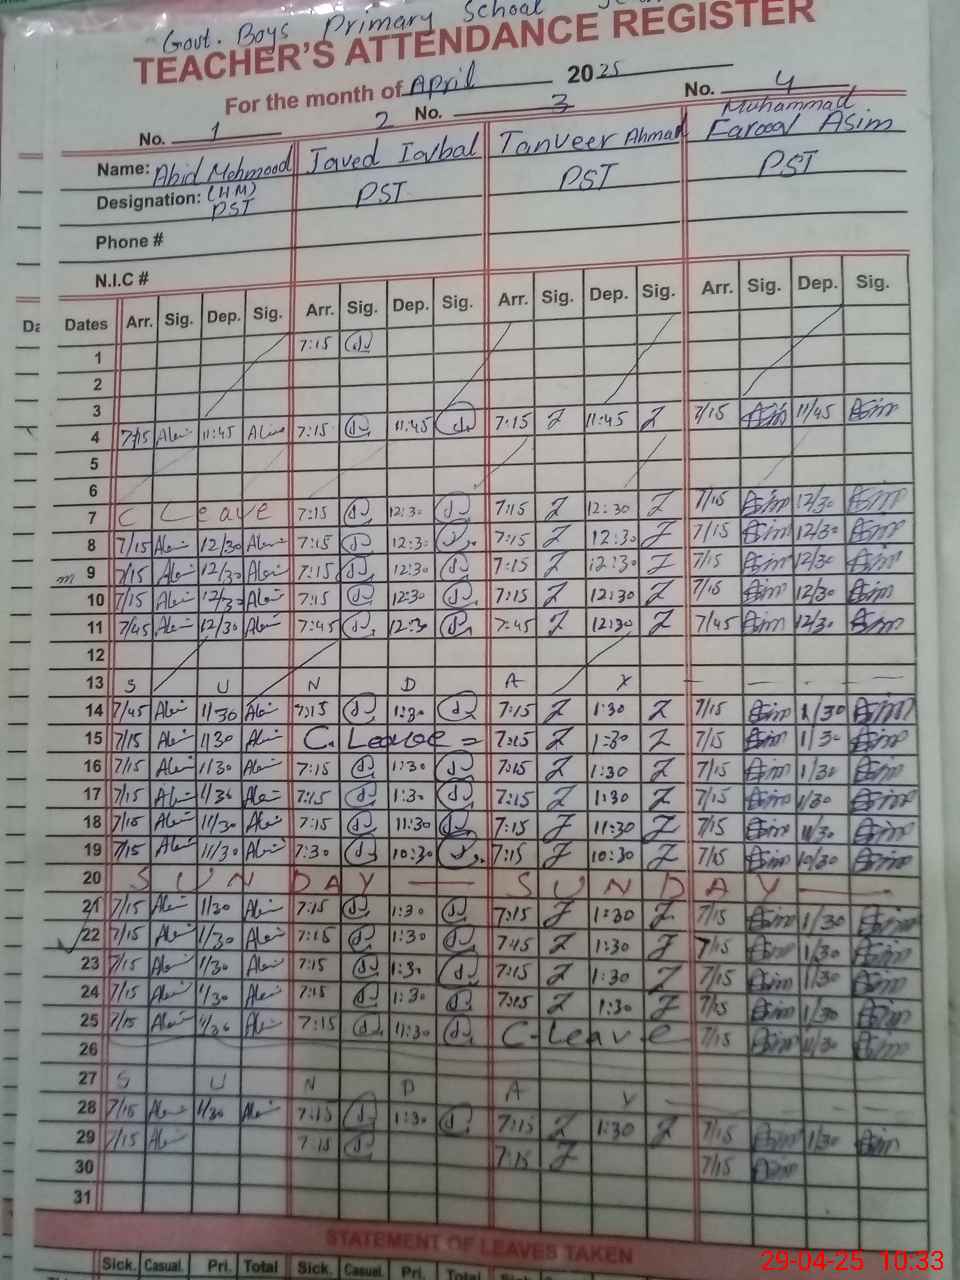 Govt. Boys Primary School
TEACHER'S ATTENDANCE REGISTER
For the month of April 2025
No. 1 2 No. 3 No. 4
Name: Abid Mehmood Javed Iqbal Tanveer Ahmad Muhammad Farooq Asim
Designation: (HM) PST PST PST PST
Phone #
N.I.C #
Dates Arr. Sig. Dep. Sig. Arr. Sig. Dep. Sig. Arr. Sig. Dep. Sig. Arr. Sig. Dep. Sig.
1 7:15
2
3
4 7/15 11:45 7:15 11:45 7:15 11:45 7/15 Asim 11/45 Asim
5
6
7 C Leave 7:15 12:30 7:15 12:30 7/15 Asim 12/30 Asim
8 7/15 12/30 7:15 12:30 7:15 12:30 7/15 Asim 12/30 Asim
m 9 7/15 12/30 7:15 12:30 7:15 12:30 7/15 Asim 12/30 Asim
10 7/15 12/30 7:15 12:30 7:15 12:30 7/15 Asim 12/30 Asim
11 7/45 12/30 7:45 12:30 7:45 12:30 7/45 Asim 12/30 Asim
12
13 S U N D A Y
14 7/45 1/30 7:15 1:30 7:15 1:30 7/15 Asim 1/30 Asim
15 7/15 1/30 C. Leave = 7:15 1:30 7/15 Asim 1/30 Asim
16 7/15 1/30 7:15 1:30 7:15 1:30 7/15 Asim 1/30 Asim
17 7/15 1/30 7:15 1:30 7:15 1:30 7/15 Asim 1/30 Asim
18 7/15 11/30 7:15 11:30 7:15 11:30 7/15 Asim 11/30 Asim
19 7/15 11/30 7:30 10:30 7:15 10:30 7/15 Asim 10/30 Asim
20 SUNDAY — SUNDAY —
21 7/15 1/30 7:15 1:30 7:15 1:30 7/15 Asim 1/30 Asim
22 7/15 1/30 7:15 1:30 7:15 1:30 7/15 Asim 1/30 Asim
23 7/15 1/30 7:15 1:30 7:15 1:30 7/15 Asim 1/30 Asim
24 7/15 1/30 7:15 1:30 7:15 1:30 7/15 Asim 1/30 Asim
25 7/15 7:15 11:30 C-Leave 7/15 Asim 11/30 Asim
26
27 S U N D A Y
28 7/15 1/30 7:15 1:30 7:15 1:30 7/15 Asim 1/30 Asim
29 7/15 7:15 7:15 7/15 Asim
30
31
STATEMENT OF LEAVES TAKEN
Sick. Casual. Pri. Total Sick. Casual. Pri. Total Sick. Casual
29-04-25 10:33